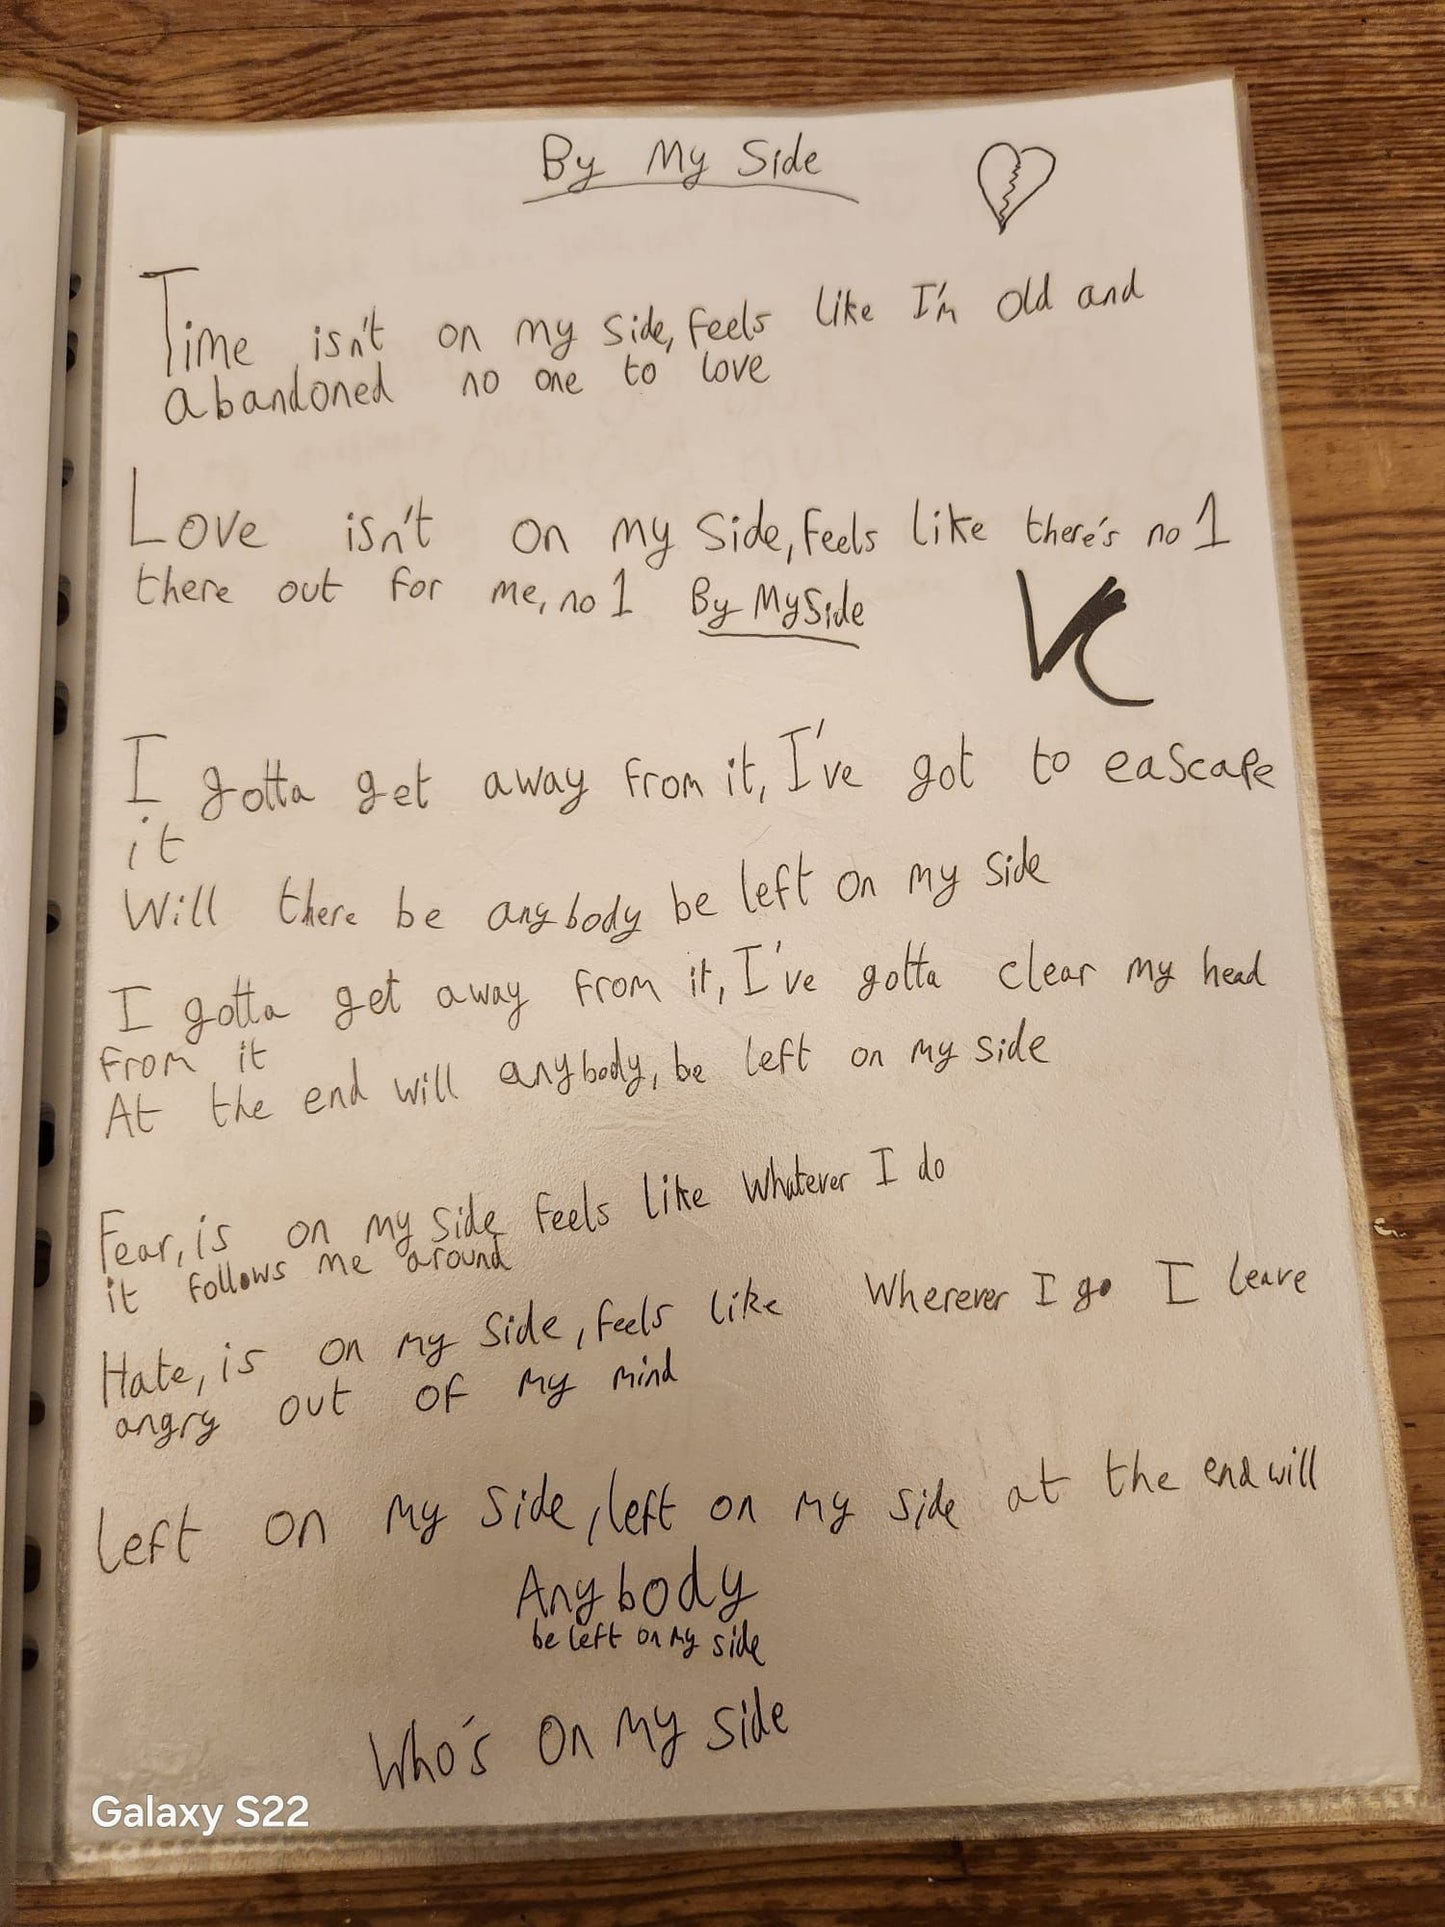 By My Side
Time isn't on my side, feels like I'm old and
abandoned no one to love
Love isn't on my side, feels like there's no 1
there out for me, no 1 By My Side
I gotta get away from it, I've got to eascape
it
Will there be anybody be left on my side
I gotta get away from it, I've gotta clear my head
from it
At the end will anybody, be left on my side
Fear, is on my side feels like whatever I do
it follows me around
Hate, is on my side, feels like Wherever I go I leave
angry out of my mind
left on my side, left on my side at the end will
Anybody
be left on my side
Who's on my side
Galaxy S22